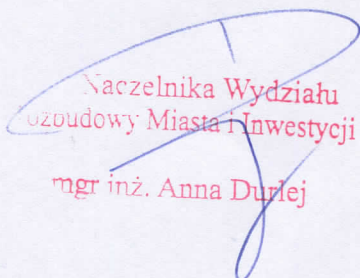 Naczelnika Wydziału
ozbudowy Miasta i Inwestycji
mgr inż. Anna Durlej